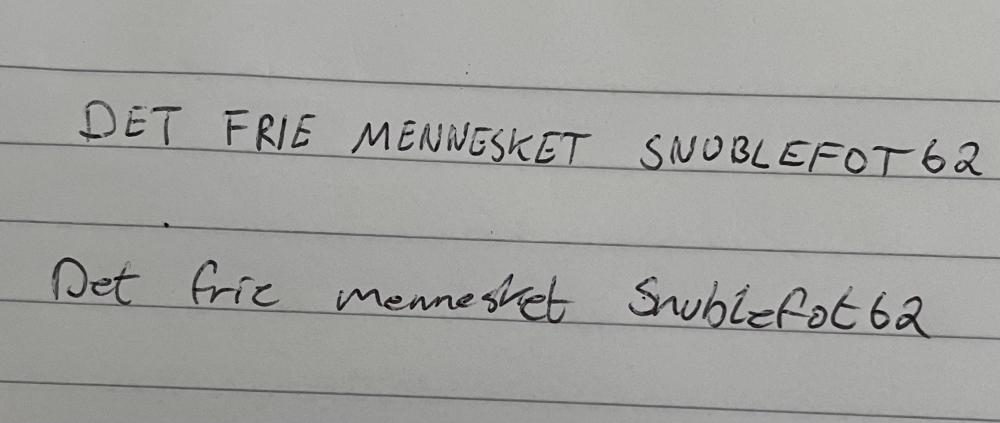 DET FRIE MENNESKET SNUBLEFOT62
Det frie mennesket Snublefot62